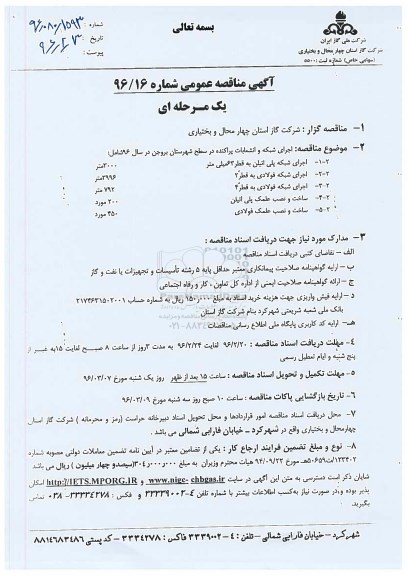 بسمه تعالی
شماره : ۹۶/۰۸۰/۱۵۹۳
تاریخ
پیوست :
شرکت ملی گاز ایران
شرکت گاز استان چهار محال و بختیاری
(سهامی خاص) شماره ثبت :۵۵۰۰
آگهی مناقصه عمومی شماره ۹۶/۱۶
یک مرحله ای
۱- مناقصه گزار : شرکت گاز استان چهار محال و بختیاری
۲- موضوع مناقصه: اجرای شبکه و انشعابات پراکنده در سطح شهرستان بروجن در سال ۹۶شامل:
۱-۲- اجرای شبکه پلی اتیلن به قطر۶۳میلی متر ۳۰۰۰متر
۲-۲- اجرای شبکه فولادی به قطر۲ ۳۹۹۶متر
۳-۲- اجرای شبکه فولادی به قطر۴ ۷۹۲ متر
۴-۲- ساخت و نصب علمک پلی اتیلن ۲۰۰ مورد
۵-۲- ساخت و نصب علمک فولادی ۴۵۰ مورد
۳- مدارک مورد نیاز جهت دریافت اسناد مناقصه :
الف – تقاضای کتبی دریافت اسناد مناقصه
ب – ارایه گواهینامه صلاحیت پیمانکاری معتبر حداقل پایه ۵ رشته تأسیسات و تجهیزات یا نفت و گاز
ج – ارائه گواهینامه صلاحیت ایمنی از اداره کل تعاون ، کار و رفاه اجتماعی
د – ارایه فیش واریزی جهت هزینه خرید اسناد به مبلغ ۱۵۰٫۰۰۰ ریال به شماره حساب ۲۱۷۳۶۳۱۵۰۲۰۰۱
بانک ملی شعبه شریعتی شهرکرد بنام شرکت گاز استان
هـ- ارایه کد کاربری پایگاه ملی اطلاع رسانی مناقصات
۴- مهلت دریافت اسناد مناقصه : ۹۶/۲/۲۰ لغایت ۹۶/۲/۲۴ به مدت ۳روز از ساعت ۸ صبح لغایت ۱۵به غیر از
پنج شنبه و ایام تعطیل رسمی
۵- مهلت تکمیل و تحویل اسناد مناقصه : ساعت ۱۵ بعد از ظهر روز یک شنبه مورخ ۹۶/۰۳/۰۷
۶- تاریخ بازگشایی پاکات مناقصه : ساعت ۱۰ صبح روز سه شنبه مورخ ۹۶/۰۳/۰۹
۷- محل دریافت اسناد مناقصه امور قراردادها و محل تحویل اسناد دبیرخانه حراست (رمز و محرمانه ) شرکت گاز استان
چهارمحال و بختیاری واقع در شهرکرد – خیابان فارابی شمالی می باشد .
۸- نوع و مبلغ تضمین فرایند ارجاع کار : یکی از تضامین معتبر در آیین نامه تضمین معاملات دولتی مصوبه شماره
۱۲۳۴۰۲/ت۵۰۶۵۹هـ مورخ ۹۴/۰۹/۲۲ هیات محترم وزیران به مبلغ ۳۰۴٫۰۰۰٫۰۰۰(سیصدو چهار میلیون ) ریال می باشد
شایان ذکر است دسترسی به متن این آگهی در سایت www.nigc- chbgas.ir و http://IETS.MPORG.IR امکان
پذیر بوده و،در صورت نیاز به‌کسب اطلاعات بیشتر با شماره تلفن ۴-۳۳۳۳۹۰۰۲ و فکس : ۳۳۳۴۲۷۸ -۰۳۸ تماس
بگیرید.
شهرکرد – خیابان فارابی شمالی – تلفن : ۴-۳۳۳۹۰۰۲ فاکس : ۳۳۳۴۲۷۸ – کد پستی ۸۸۱۴۶۸۳۴۸۶